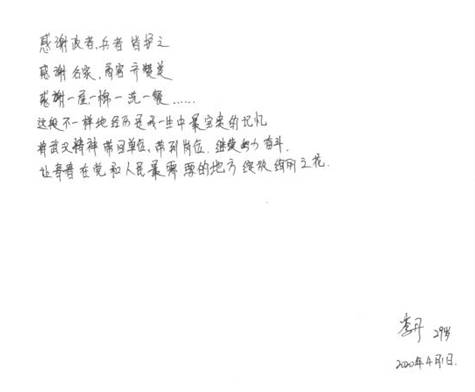 感谢政者、兵者皆护之
感谢名家、商客齐赞美
感谢一屋一棉一洗一餐……
这段不一样地经历是我一生中最宝贵的记忆
将武汉精神带回单位、带到岗位.继续努力奋斗.
让青春在党和人民最需要的地方绽放绚丽之花.
李丹 29岁
2020年4月1日.